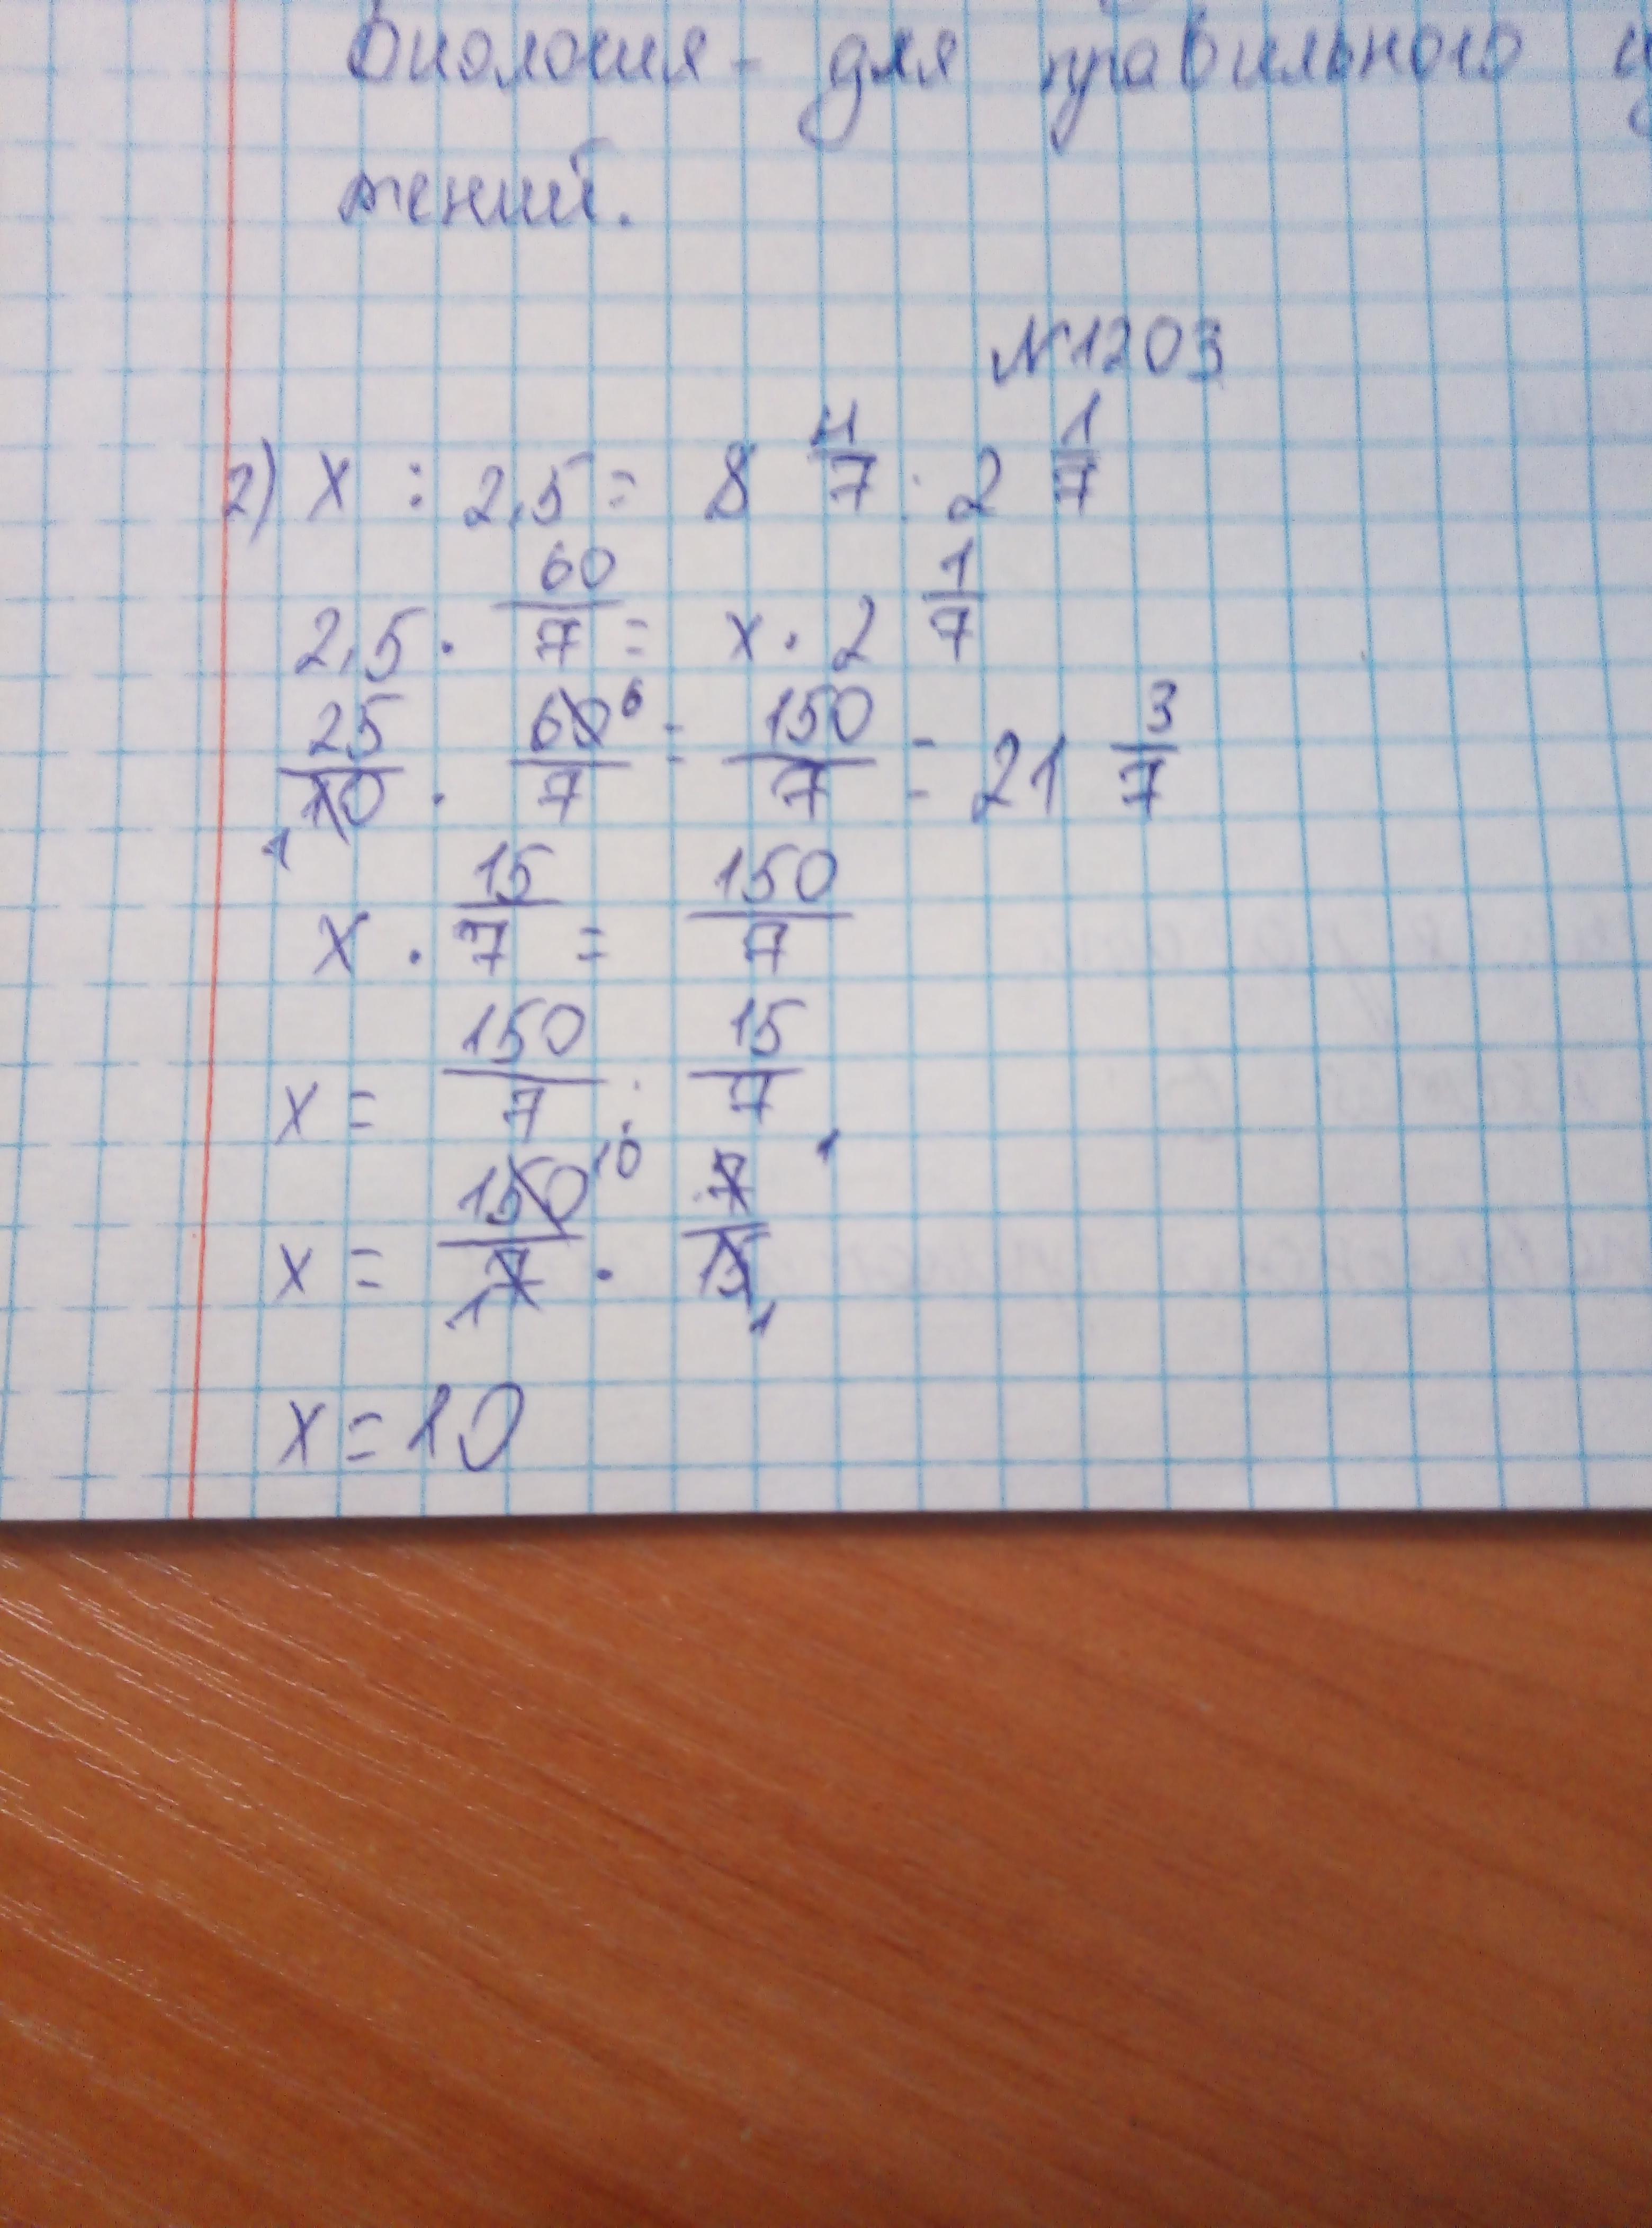 Биология - для правильного
жений.
№1203
2) x : 2,5 = 8 4/7 : 2 1/7
2,5 · 60/7 = x · 2 1/7
25/10 1 · 60/7 6 = 150/7 = 21 3/7
x · 15/7 = 150/7
x = 150/7 : 15/7
x = 150/7 10 1 · 7/15 1 1
x = 10